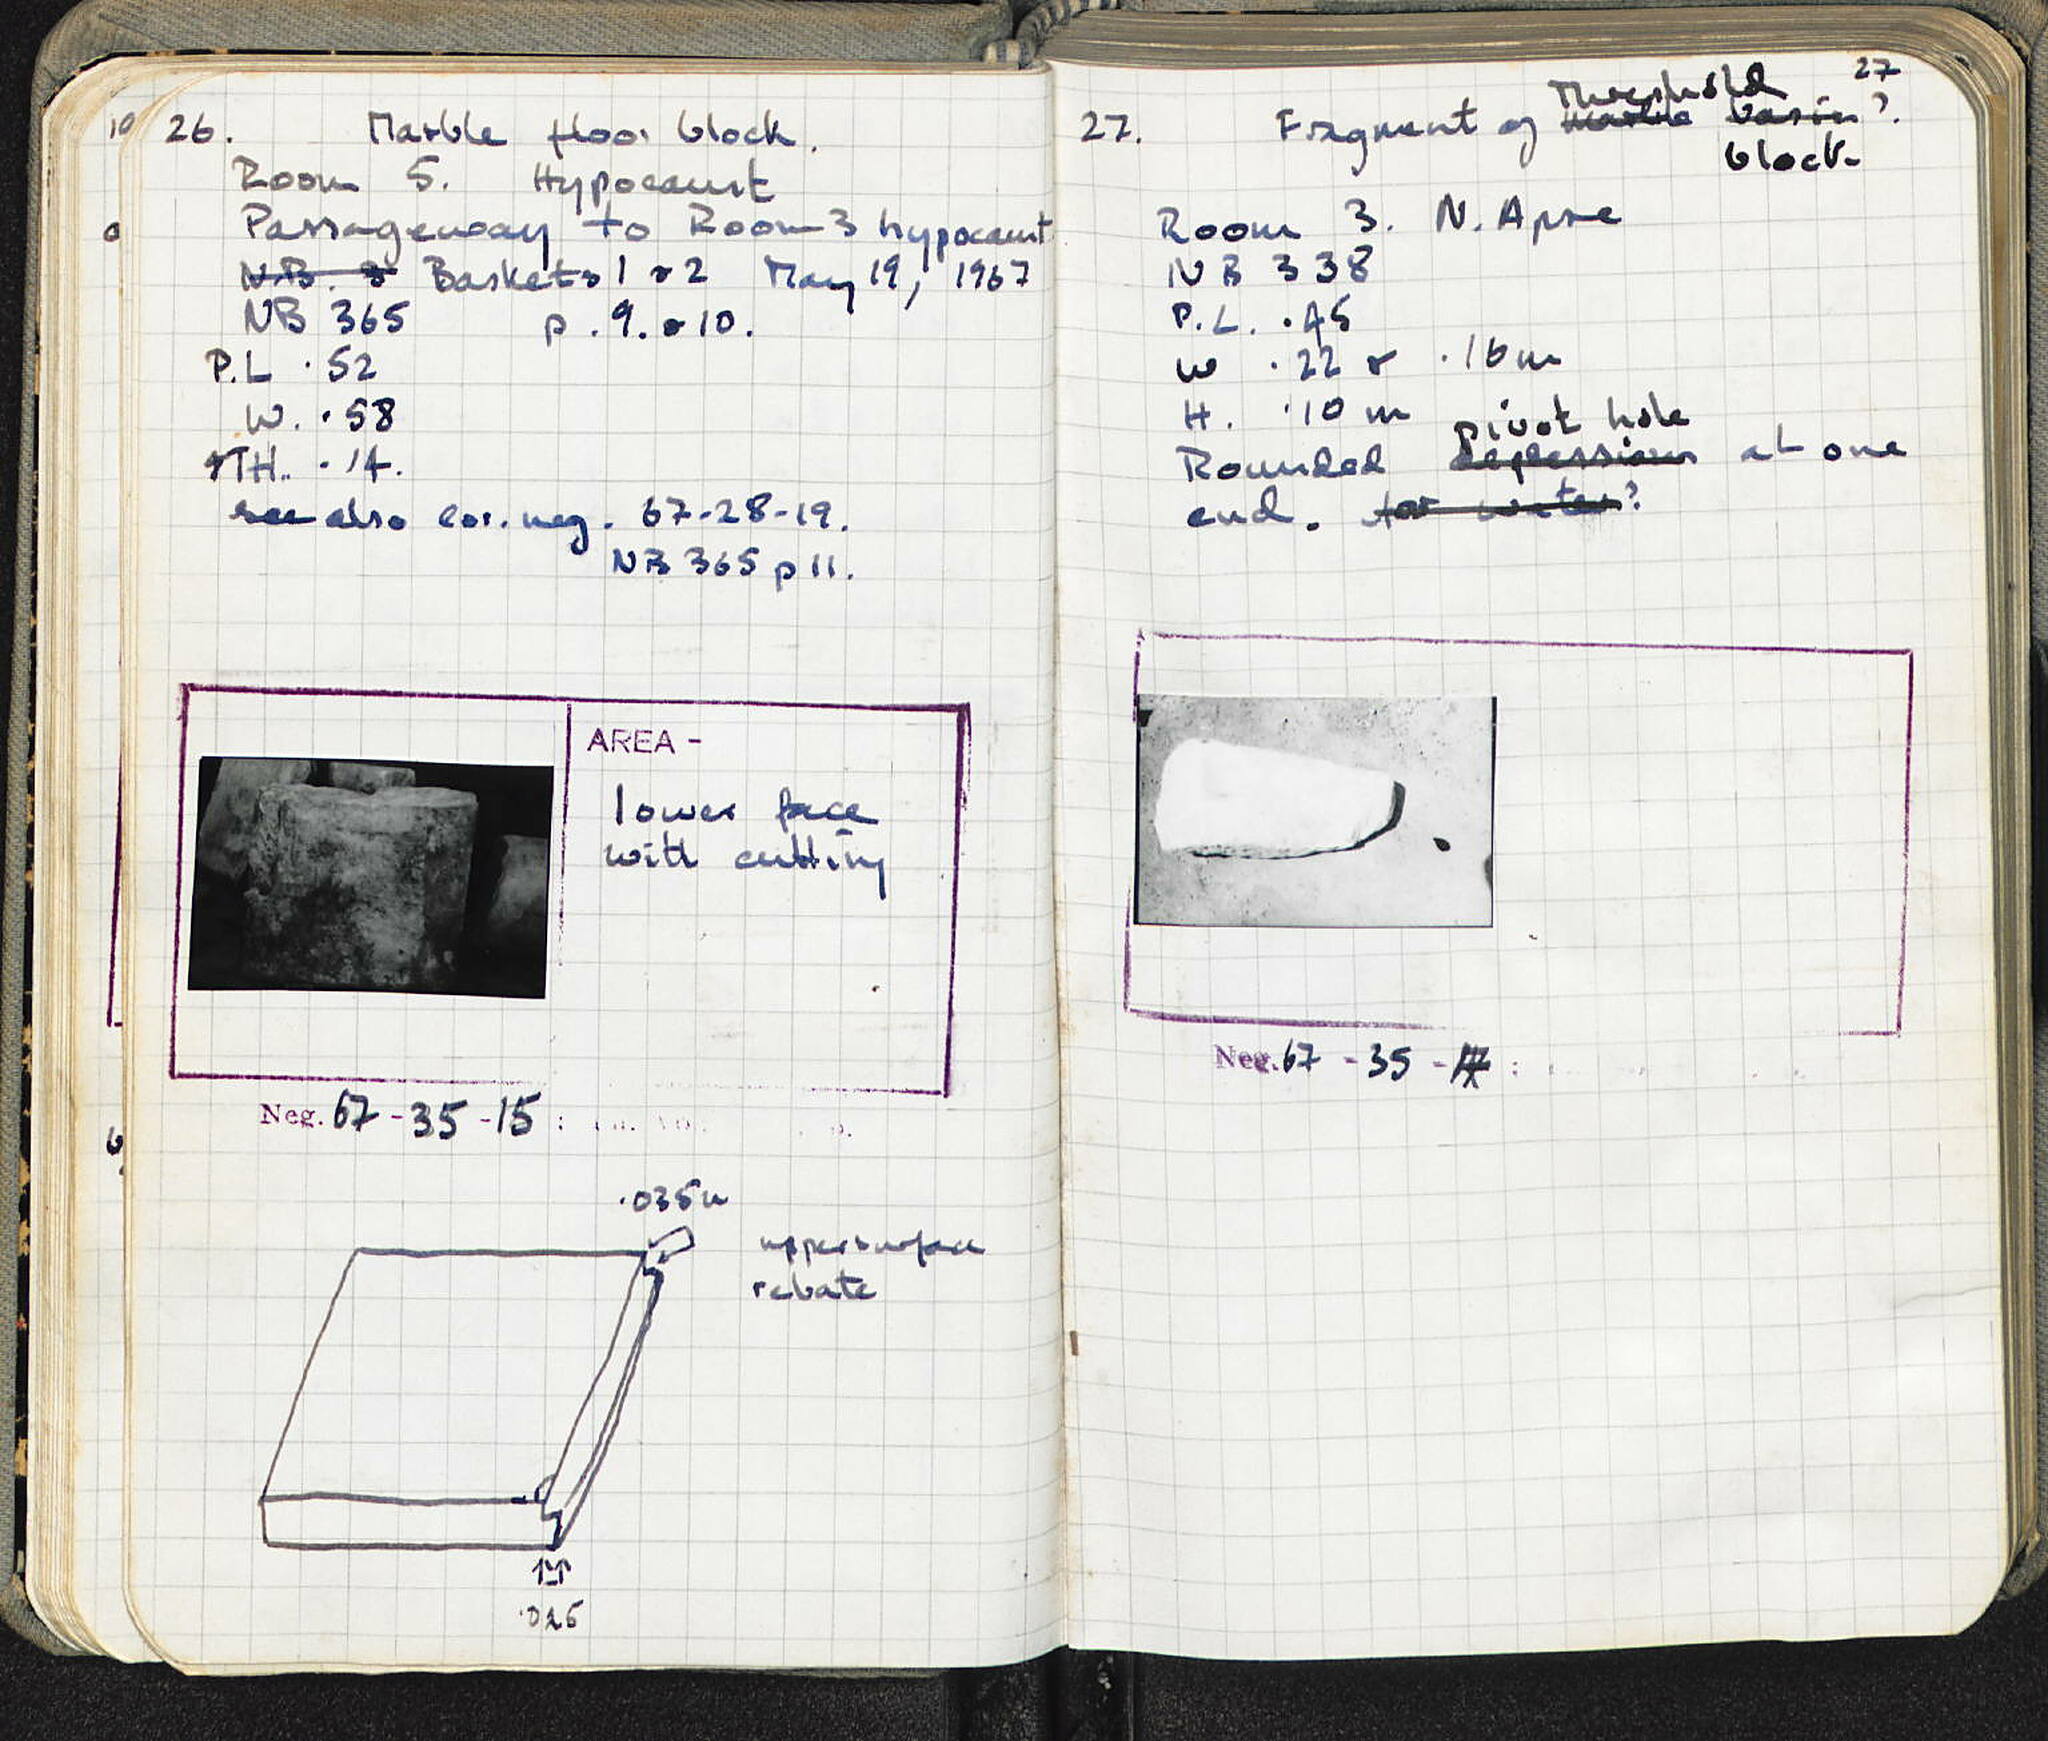 26. Marble floor block.
Room 5. Hypocaust
Passageway to Room 3 hypocaust
N.B. 3 Baskets 1 & 2 May 19, 1967
NB 365 p. 9. & 10.
P.L .52
W. .58
TH. .14.
see also cor. neg. 67-28-19.
NB 365 p 11.
AREA -
lower face
with cutting
Neg. 67 - 35 - 15
.035 m
upper surface
rebate
.025
27
27. Fragment of marble basin?
Threshold
block
Room 3. N. Apse
NB 338
P.L. .45
W .22 & .16 m
H. .10 m
pivot hole
Rounded depression at one
end. for water?
Neg. 67 - 35 -